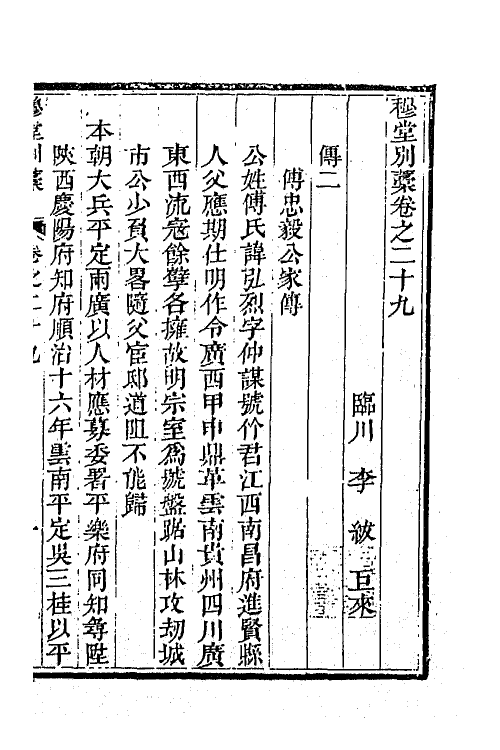 穆堂別藁卷之二十九
臨川 李 紱 巨來
傳二
傅忠毅公家傳
公姓傅氏諱弘烈字仲謀號竹君江西南昌府進賢縣
人父應期仕明作令廣西甲申鼎革雲南貴州四川廣
東西流寇餘孽各擁故明宗室爲號盤踞山林攻劫城
市公少負大畧隨父宦邸道阻不能歸
本朝大兵平定兩廣以人材應募委署平樂府同知尋陞
陝西慶陽府知府順治十六年雲南平定吳三桂以平
穆堂別藁 卷之二十九 一